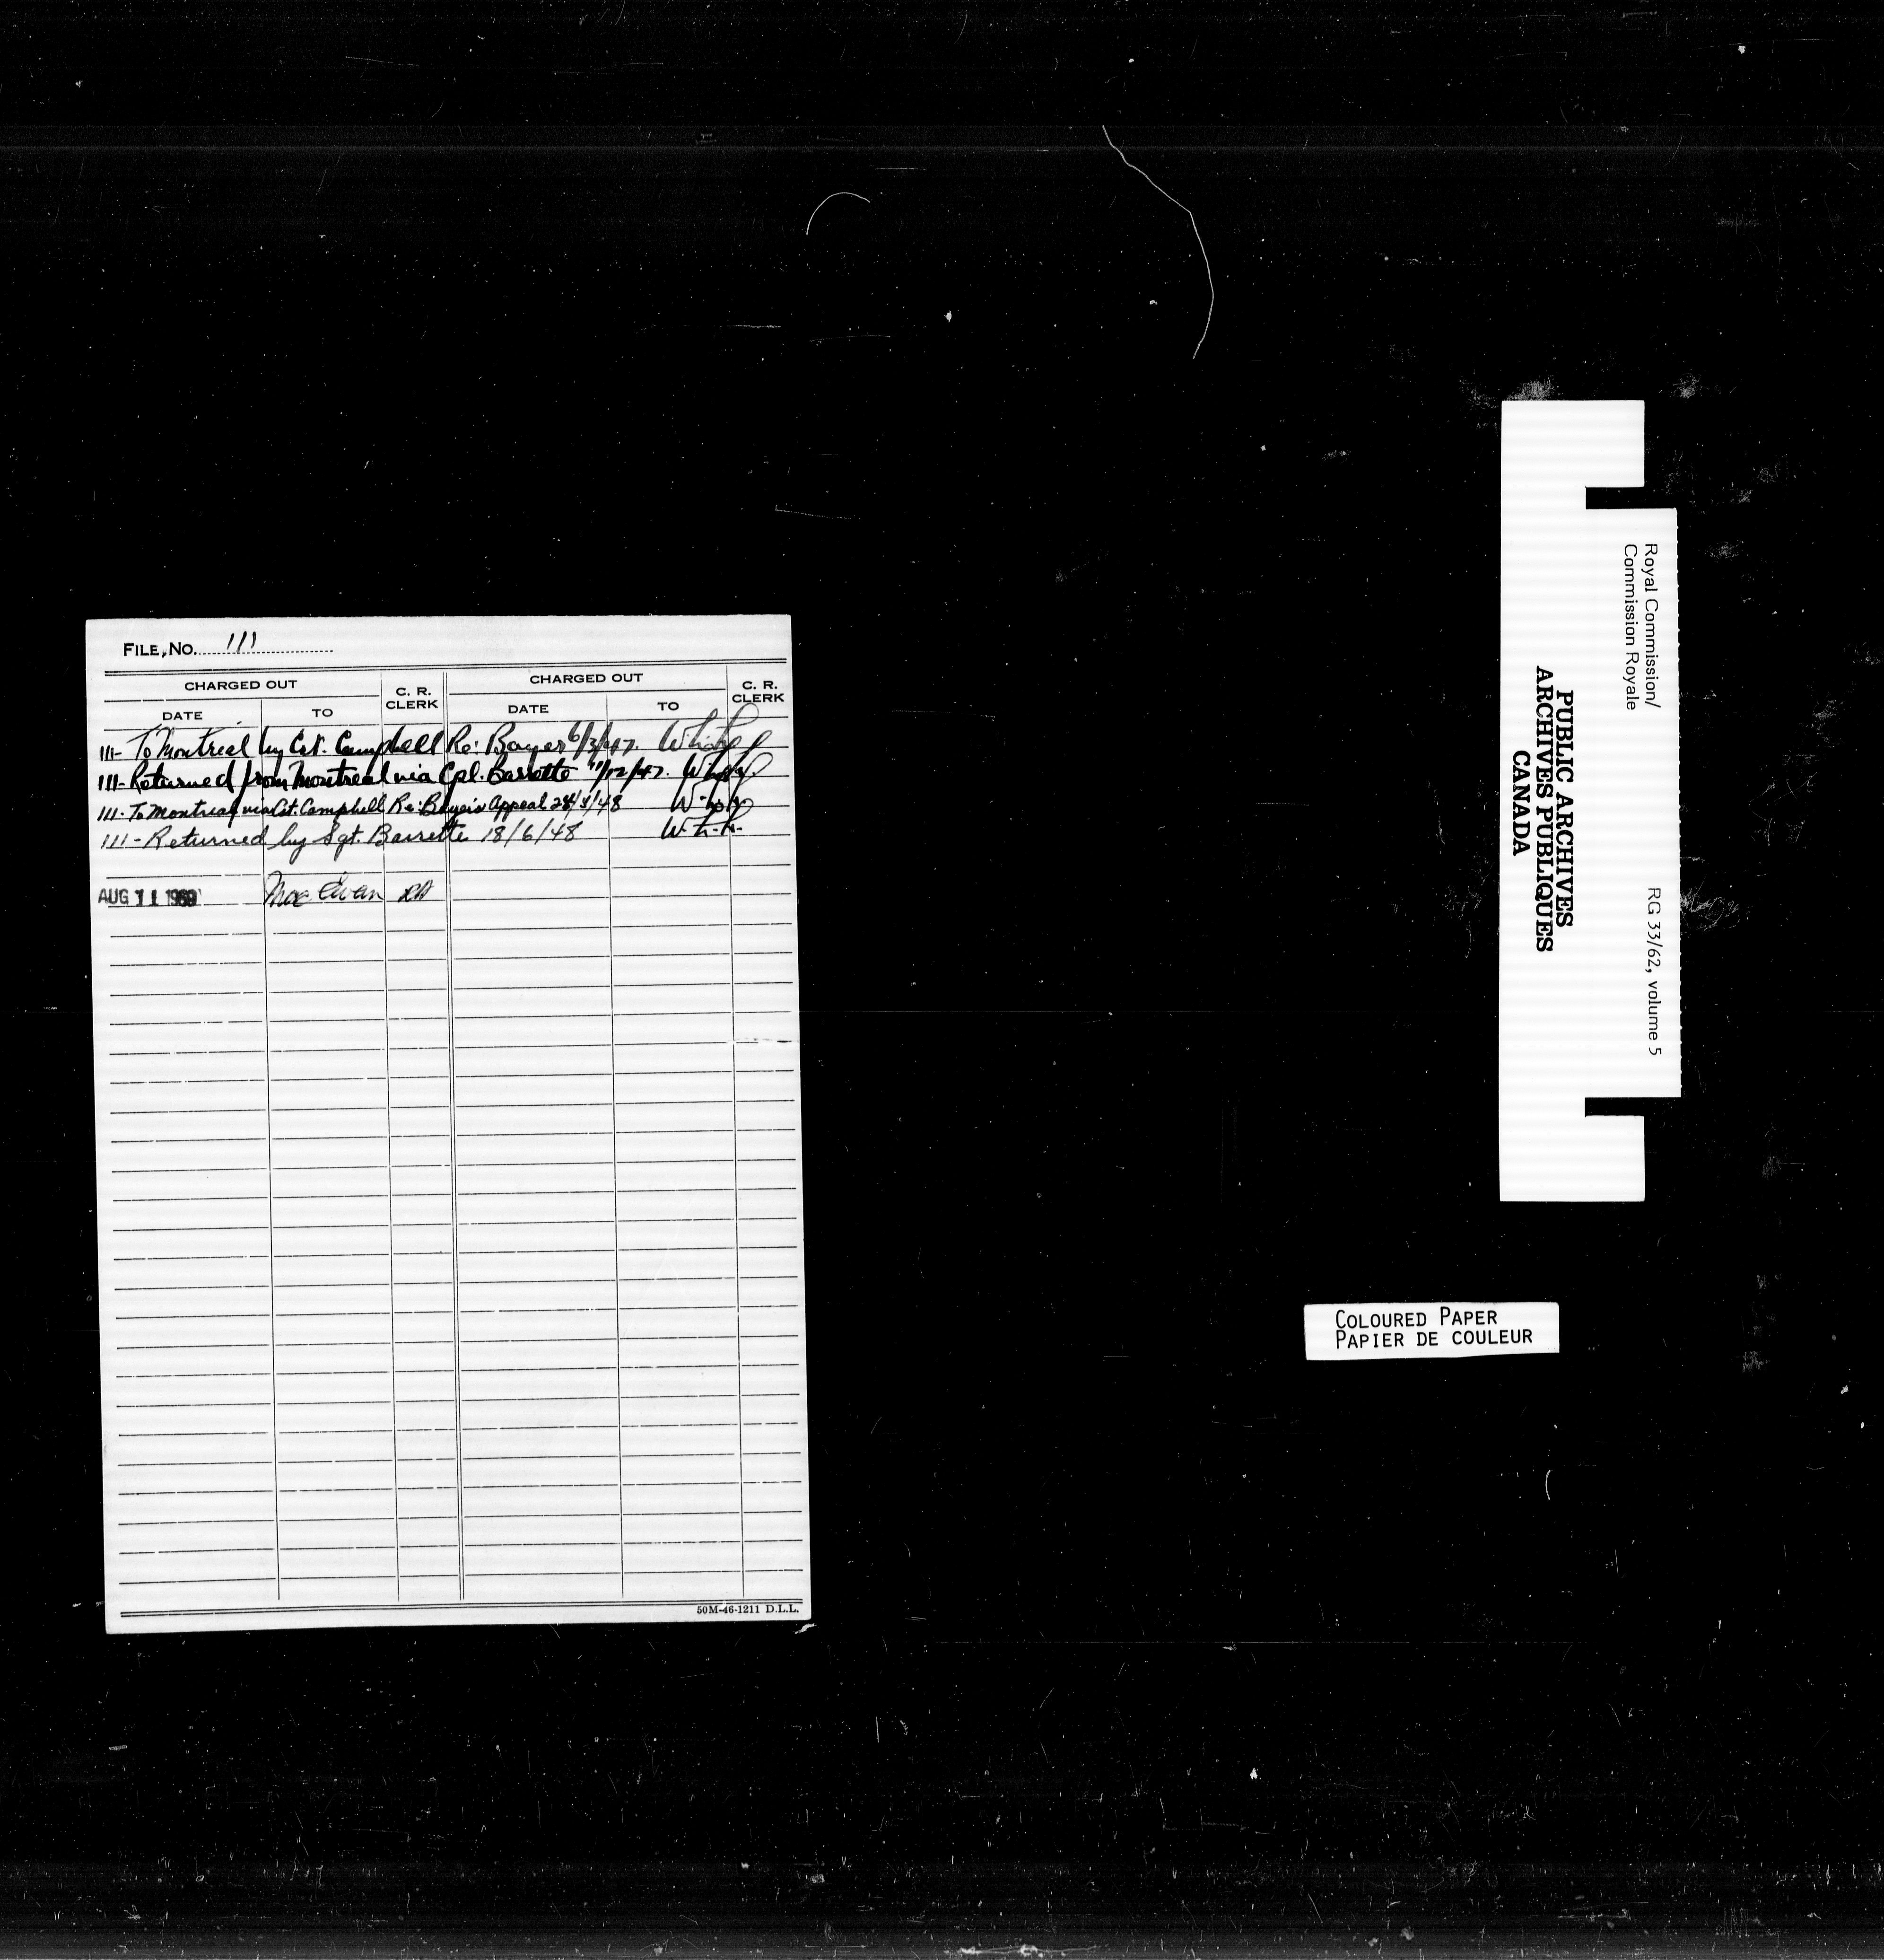 FILE, NO. 111
CHARGED OUT C. R. CLERK CHARGED OUT C. R. CLERK
DATE TO DATE TO
111- To Montreal by Cst. Campbell Re: Boyer 6/3/47.
111- Returned from Montreal via Cpl. Barrette 11/12/47.
111- To Montreal via Cst. Campbell Re: Boyer's Appeal /48
111- Returned by Sgt. Barrette 18/6/48 W.h.h.
AUG 11 1969 MacEwan
50M-46-1211 D.L.L.
Royal Commission/
Commission Royale
RG 33/62, volume 5
PUBLIC ARCHIVES
ARCHIVES PUBLIQUES
CANADA
COLOURED PAPER
PAPIER DE COULEUR